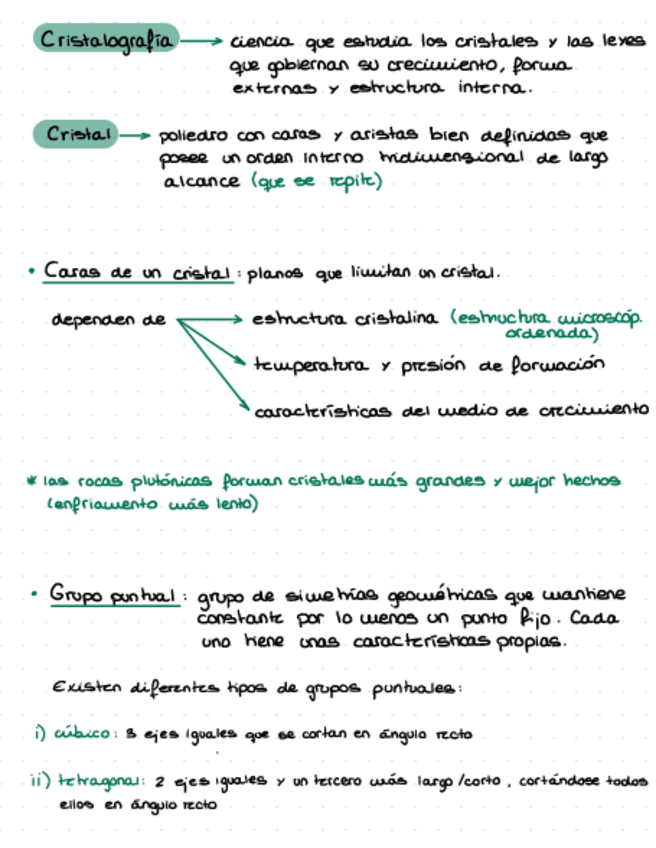 Cristalografía → ciencia que estudia los cristales y las leyes
que gobiernan su crecimiento, forma
externas y estructura interna.
Cristal → poliedro con caras y aristas bien definidas que
posee un orden interno tridimensional de largo
alcance (que se repite)
• Caras de un cristal: planos que limitan un cristal.
dependen de → estructura cristalina (estructura microscóp.
ordenada)
temperatura y presión de formación
características del medio de crecimiento
* las rocas plutónicas forman cristales más grandes y mejor hechos
(enfriamento más lento)
• Grupo puntual: grupo de simetrías geométricas que mantiene
constante por lo menos un punto fijo. Cada
uno tiene unas características propias.
Existen diferentes tipos de grupos puntuales:
i) cúbico: 3 ejes iguales que se cortan en ángulo recto
ii) tetragonal: 2 ejes iguales y un tercero más largo/corto, cortándose todos
ellos en ángulo recto